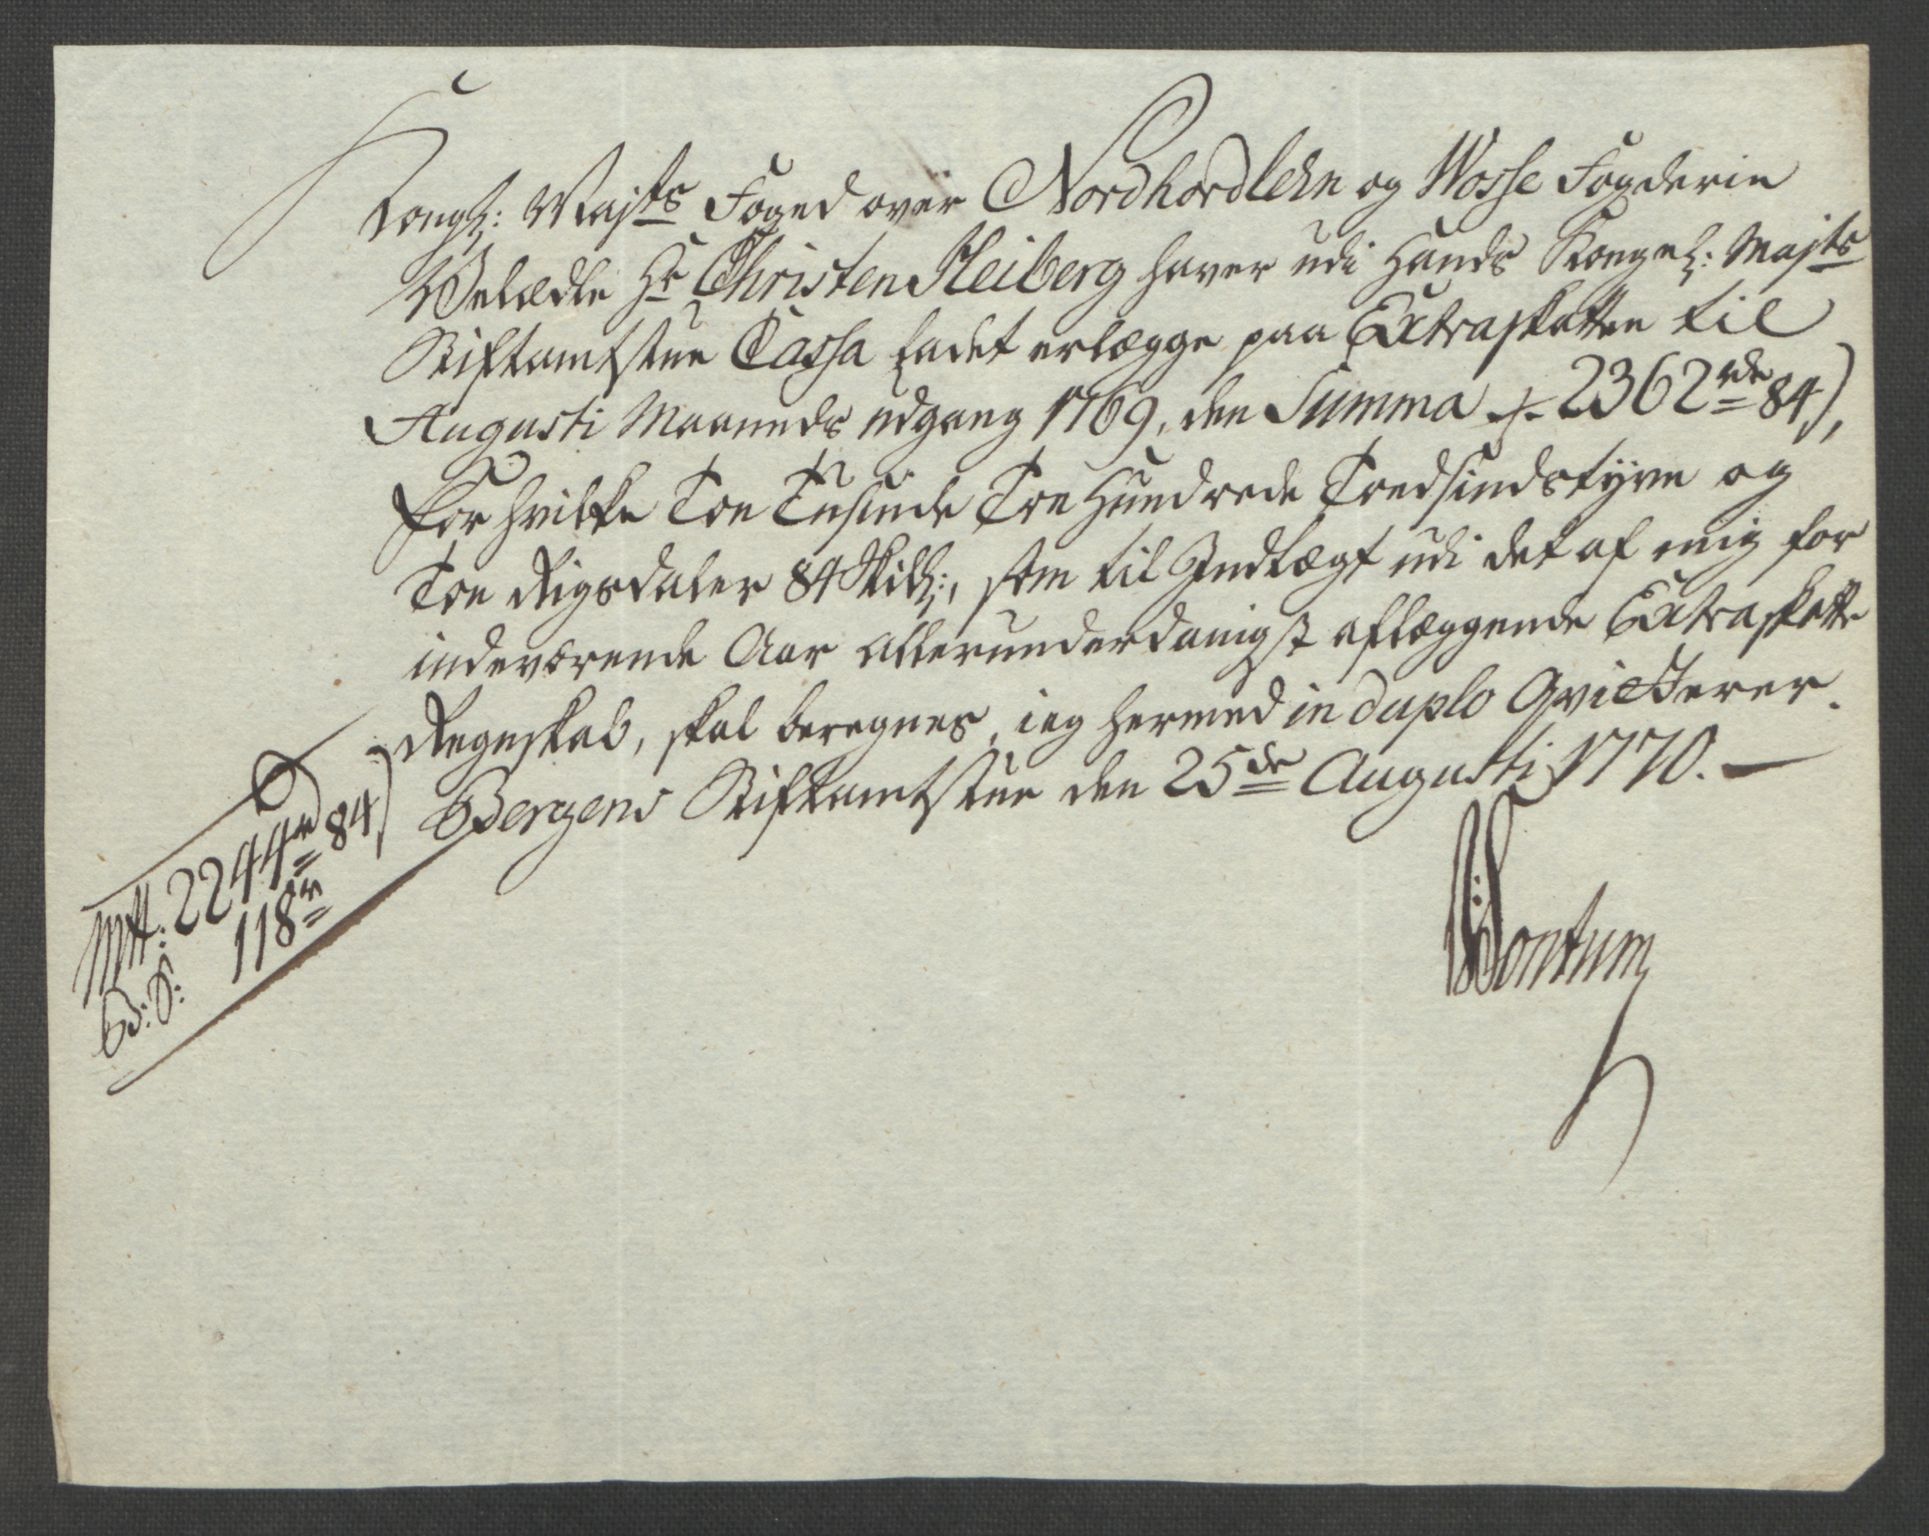 Kongl: Majts Foged over Nordhordlehn og Wosse Fogderie
Velædle Hr Christen Heiberg haver udi Hands Kongel: Majts
Stiftamtstue Cassa ladet erlægge paa Extraskatten til
Augusti Maaneds udgang 1769, den Summa 2362 rdr 84 s,
for hvilke Toe Tusinde Tre Hundrede Tredsindstyve og
Toe Rigsdaler 84 Skill:, som til Indtægt udi det af mig for
indeværende Aar allerunderdanigst aflæggende Extraskatte
Regnskab, skal beregnes, ieg hermed in duplo Qvitterer.
Bergens Stiftamtstue den 25de Augusti 1770.
2244 r 84 s
118 r